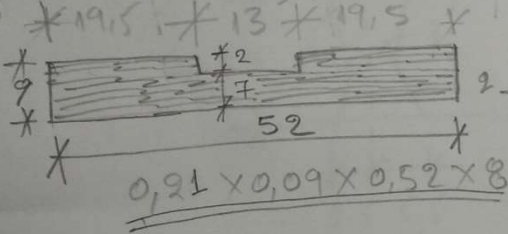 19,5 13 19,5
2
9 7 2
52
0,21 × 0,09 × 0,52 × 8